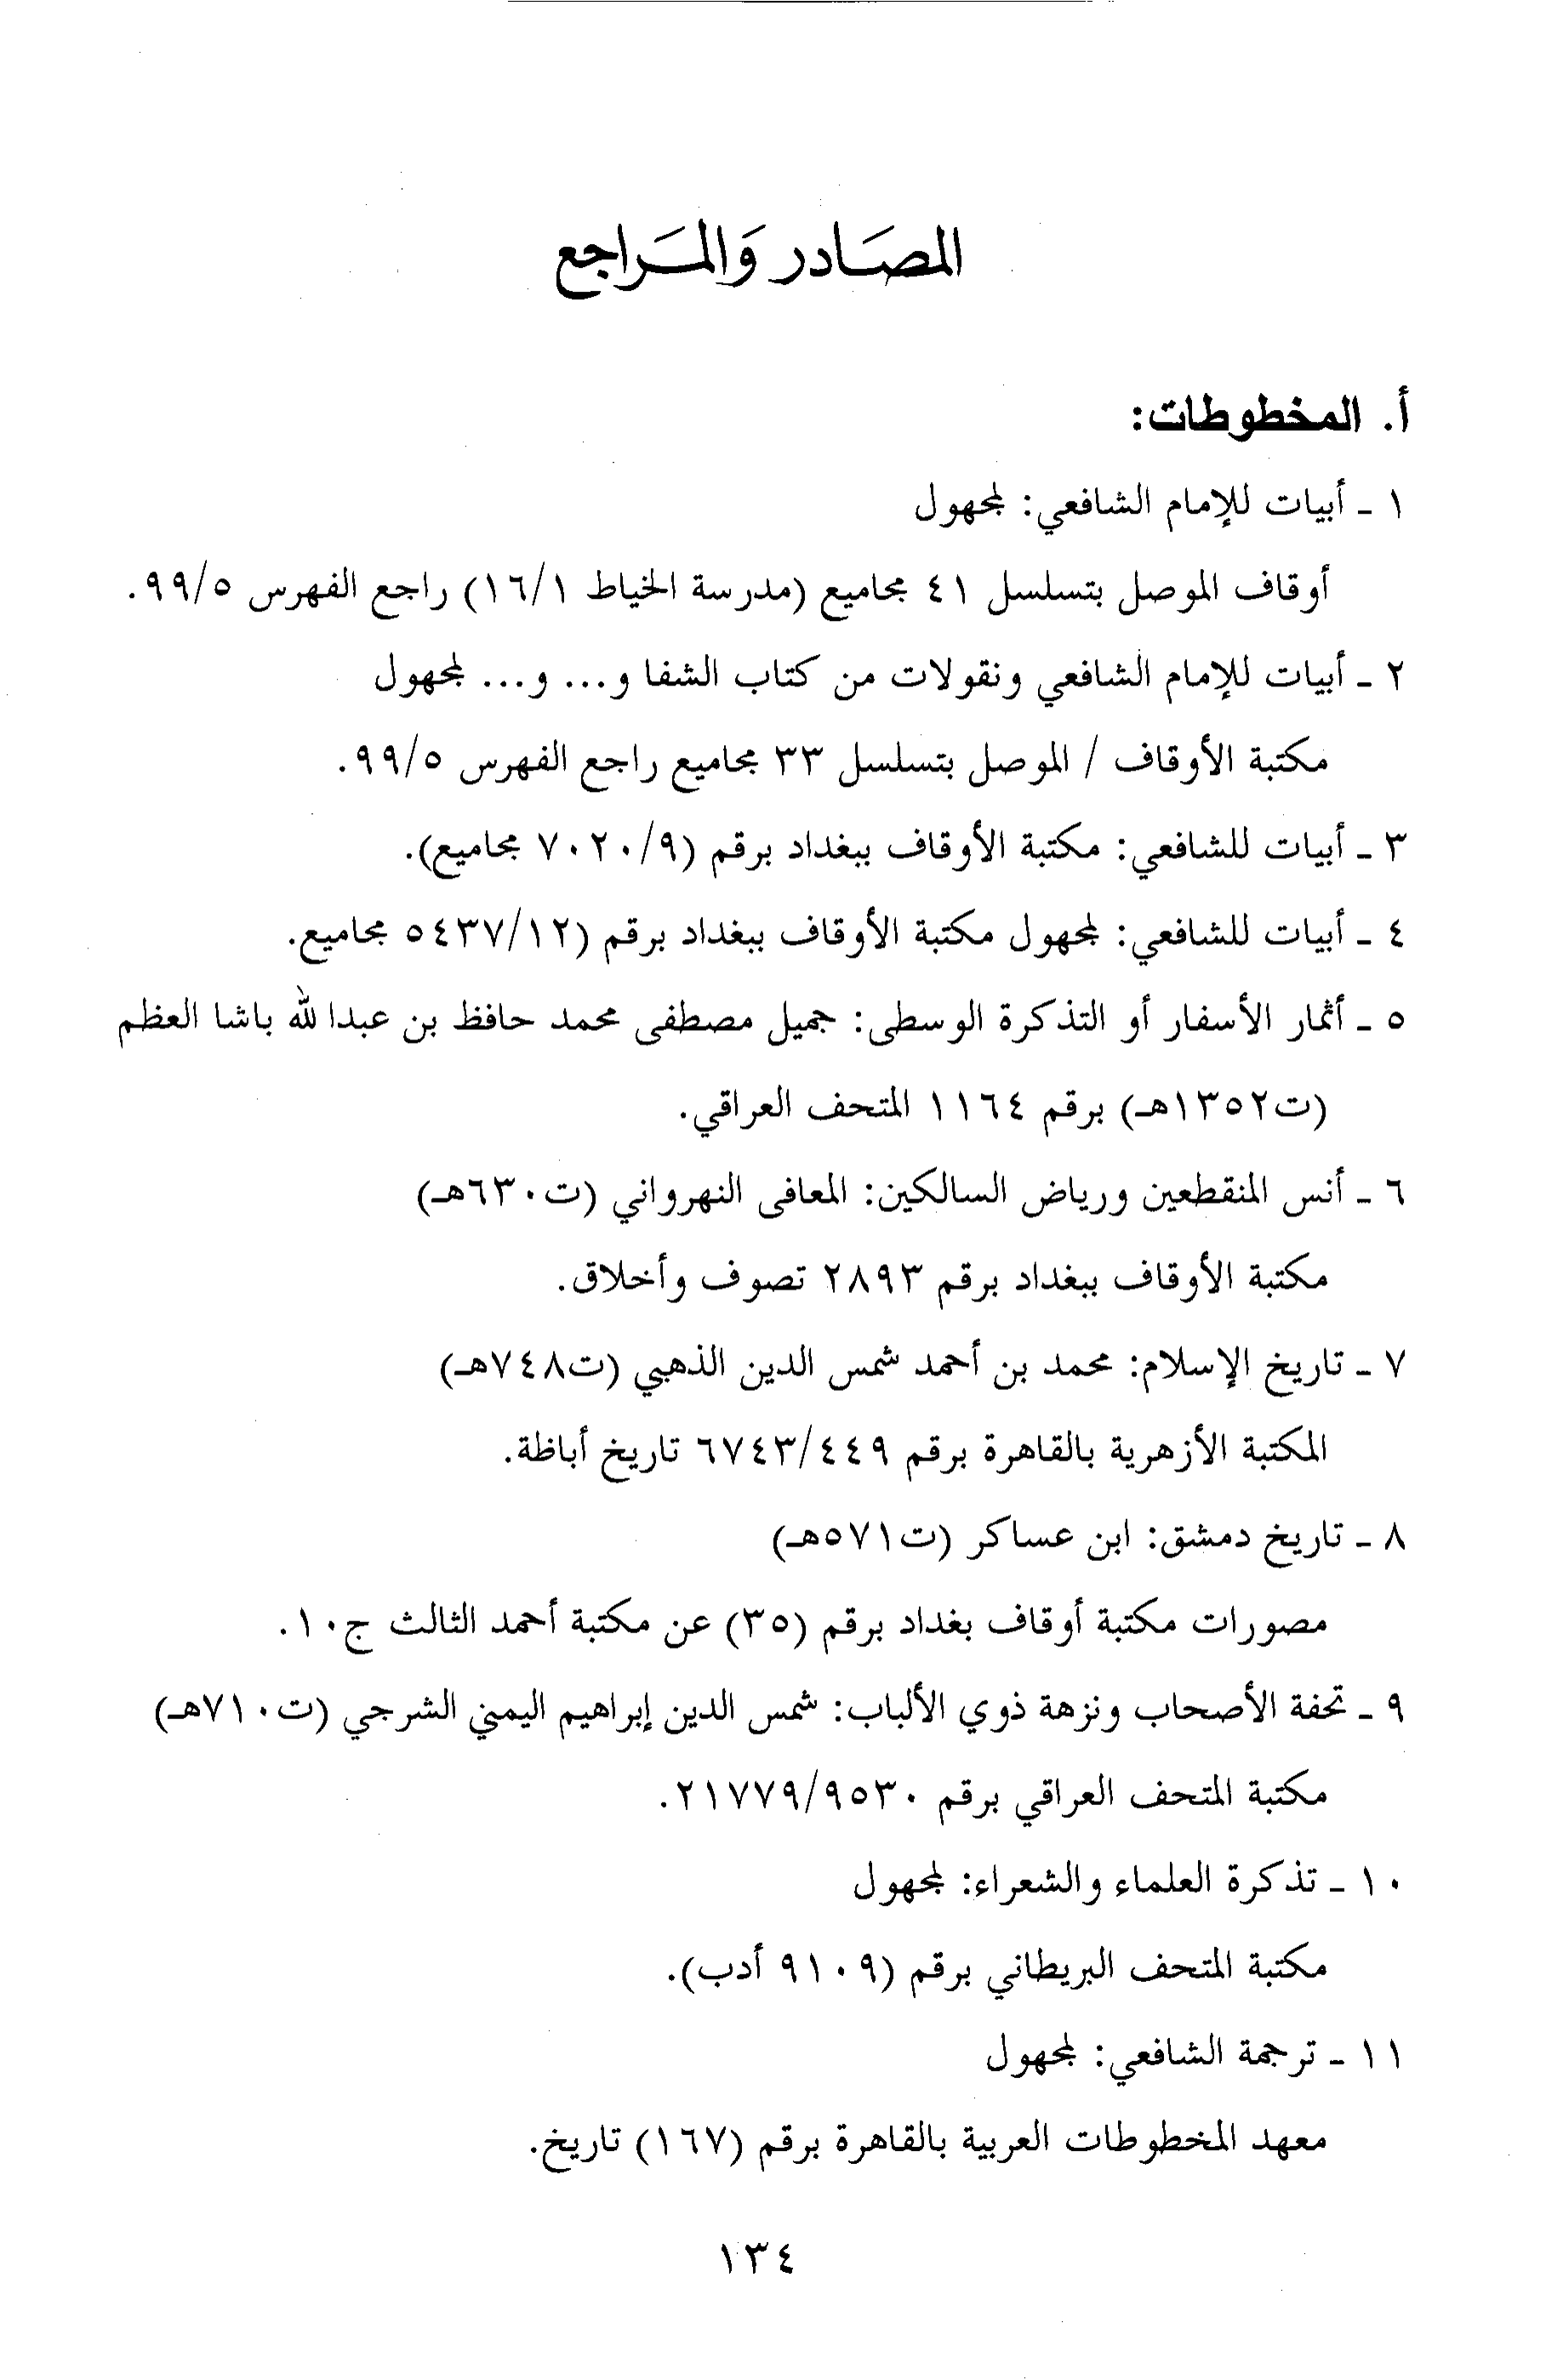 المصَادر وَالمَراجع
أ. المخطوطات:
١ ـ أبيات للإمام الشافعي: لمجهول
أوقاف الموصل بتسلسل ٤١ مجاميع (مدرسة الخياط ١٦/١) راجع الفهرس ٩٩/٥.
٢ ـ أبيات للإمام الشافعي ونقولات من كتاب الشفا و... و... لمجهول
مكتبة الأوقاف / الموصل بتسلسل ٣٣ مجاميع راجع الفهرس ٩٩/٥.
٣ ـ أبيات للشافعي: مكتبة الأوقاف ببغداد برقم (٧٠٢٠/٩ مجاميع).
٤ ـ أبيات للشافعي: لمجهول مكتبة الأوقاف ببغداد برقم (٥٤٣٧/١٢ مجاميع.
٥ ـ أثمار الأسفار أو التذكرة الوسطى: جميل مصطفى محمد حافظ بن عبدالله باشا العظم
(ت١٣٥٢هـ) برقم ١١٦٤ المتحف العراقي.
٦ ـ أنس المنقطعين ورياض السالكين: المعافى النهرواني (ت٦٣٠هـ)
مكتبة الأوقاف ببغداد برقم ٢٨٩٣ تصوف وأخلاق.
٧ ـ تاريخ الإسلام: محمد بن أحمد شمس الدين الذهبي (ت٧٤٨هـ)
المكتبة الأزهرية بالقاهرة برقم ٦٧٤٣/٤٤٩ تاريخ أباظة.
٨ ـ تاريخ دمشق: ابن عساكر (ت٥٧١هـ)
مصورات مكتبة أوقاف بغداد برقم (٣٥) عن مكتبة أحمد الثالث ج١٠.
٩ ـ تحفة الأصحاب ونزهة ذوي الألباب: شمس الدين إبراهيم اليمني الشرجي (ت٧١٠هـ)
مكتبة المتحف العراقي برقم ٢١٧٧٩/٩٥٣٠.
١٠ ـ تذكرة العلماء والشعراء: لمجهول
مكتبة المتحف البريطاني برقم (٩١٠٩ أدب).
١١ ـ ترجمة الشافعي: لمجهول
معهد المخطوطات العربية بالقاهرة برقم (١٦٧) تاريخ.
١٣٤